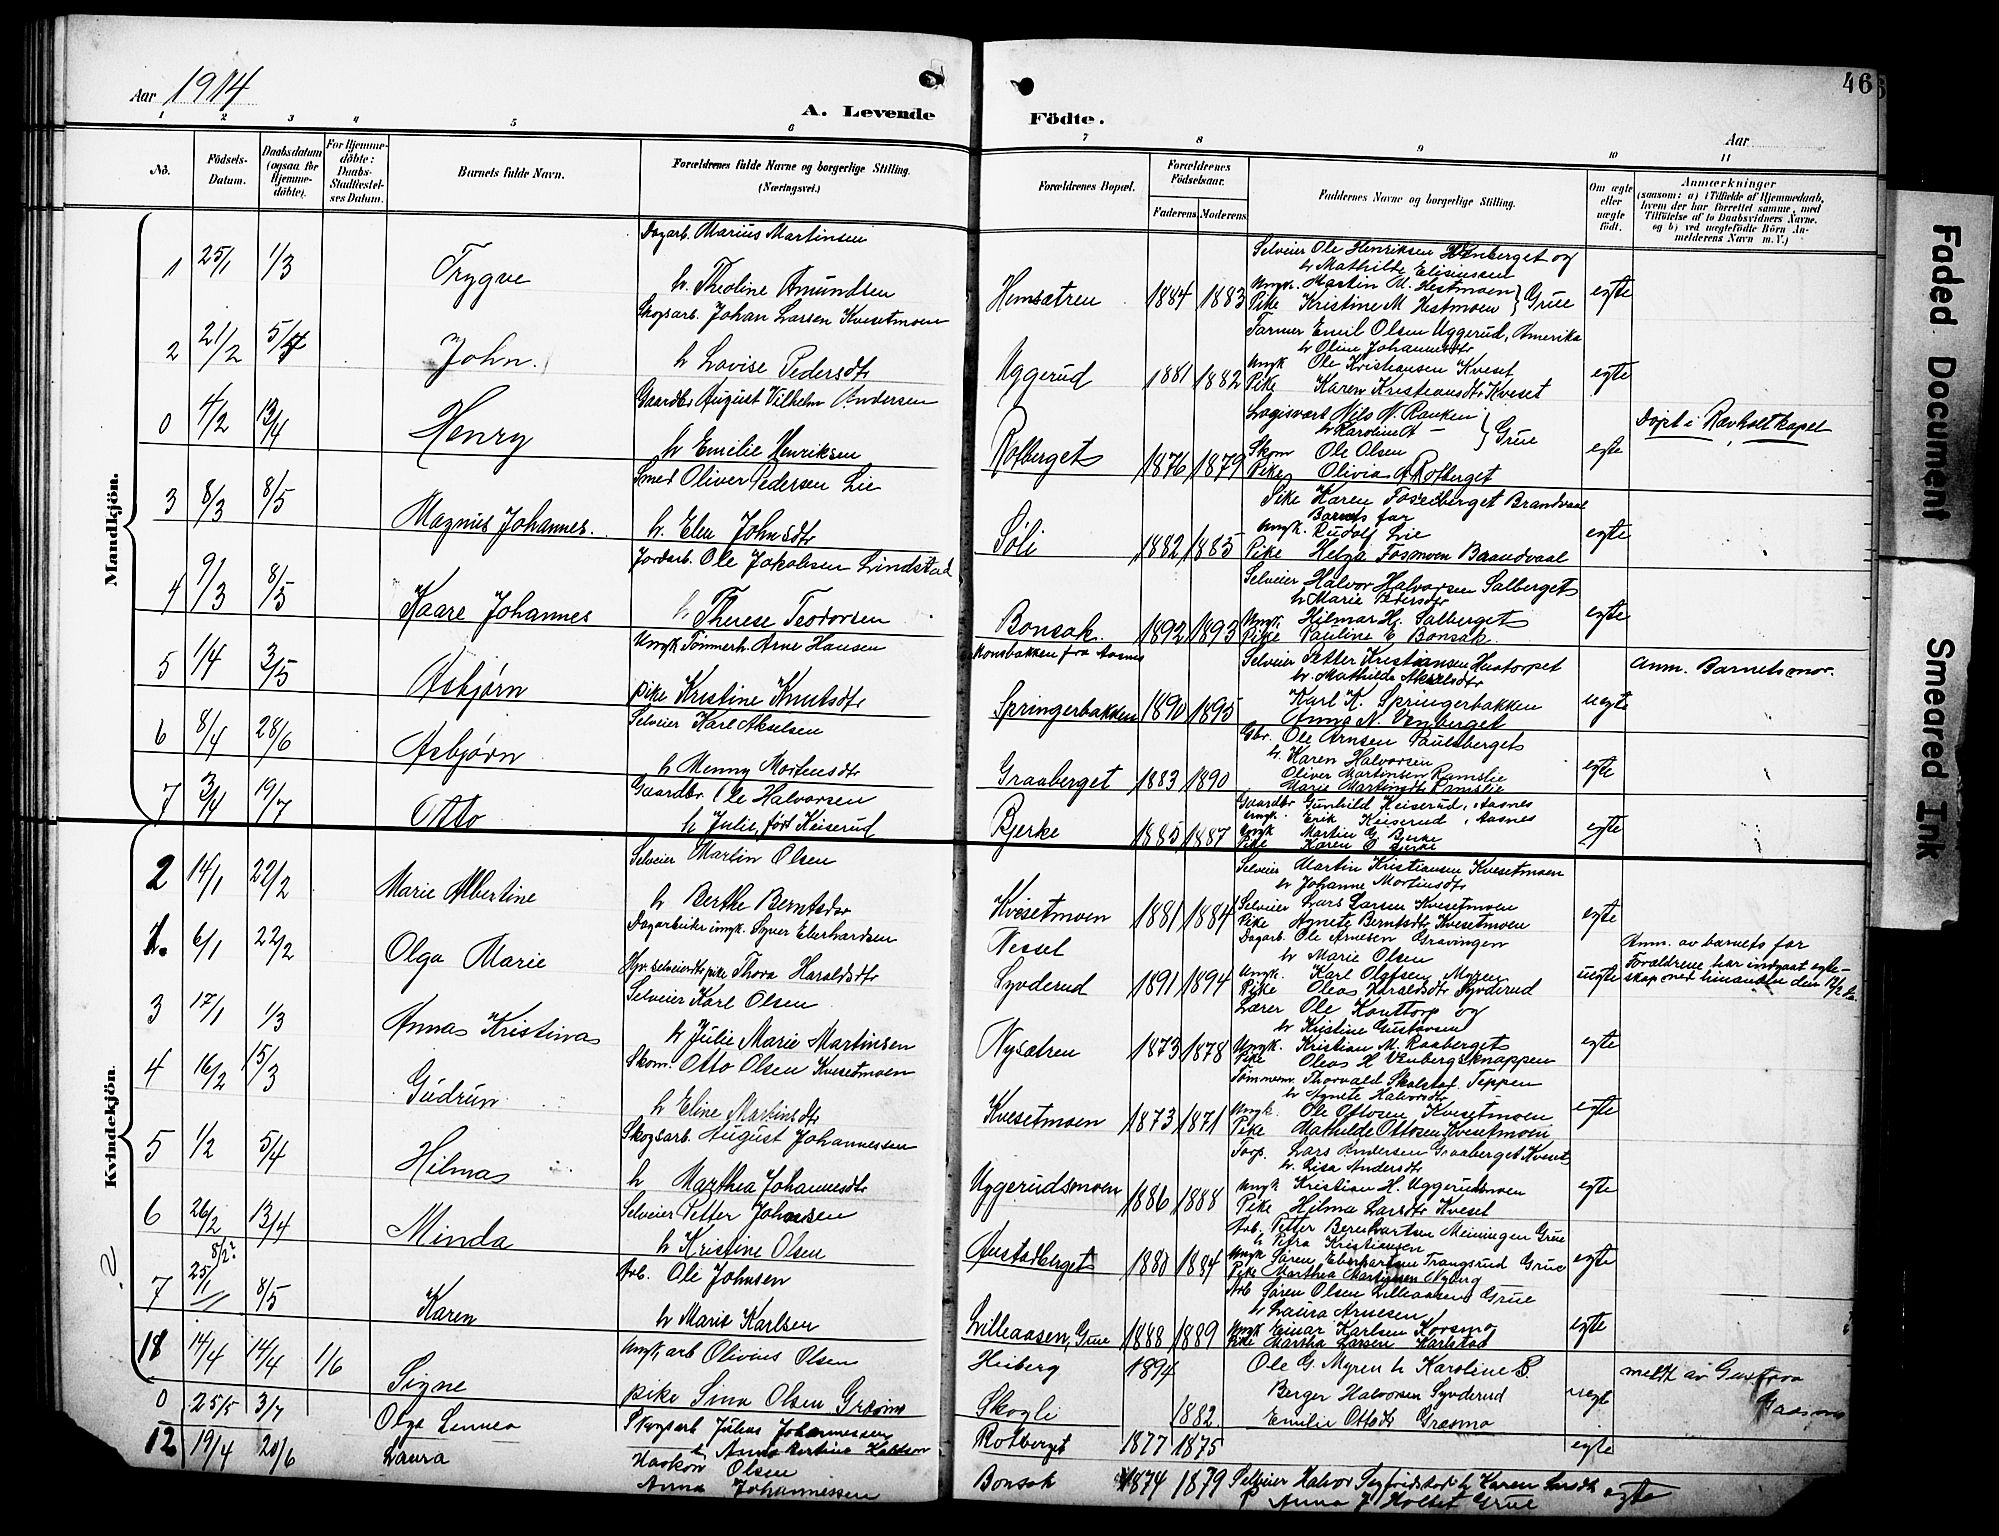 Aar 1914
A. Levende
Födte.
Aar
46
1 2 3 4 5 6 7 8 9 10 11
No.
Födsels-Datum.
Daabsdatum (ogsaa for Hjemmedöbte).
For Hjemmedöbte: Daabs-Stadfæstelses Datum.
Barnets fulde Navn.
Forældrenes fulde Navne og borgerlige Stilling. (Næringsvei.)
Forældrenes Bopæl.
Forældrenes Födselsaar.
Faderens Moderens
Faddernes Navne og borgerlige Stilling.
Om ægte eller uægte födt.
Anmærkninger
(saasom: a) i Tilfælde af Hjemmedaab,
hvem der har forrettet samme, med
Tilföielse af to Daabsvidners Navne.
og b) ved uægtefödte Börn An-
melderens Navn m. V.)
Mandkjön.
1 25/1 1/3 Trygve
Dagarb. Marius Martinsen
h. Theoline Amundsen
Hemsætren 1884 1883
Selveier Ole Henriksen Henberget og
h Mathilde Elisiussen
Ungk. Martin M. Hestmoen
Pike Kristine M Hestmoen } Grue
egte
2 21/2 5/4 John.
Skogsarb. Johan Larsen Kvesetmoen
h Lovise Pedersdtr
Uggerud 1881 1882
Farmer Emil Olsen Uggerud, Amerika
h Oline Johannesdtr
Ungk Ole Kristiansen Kveset
Pike Karen Kristiansdtr Kveset
egte
0 4/2 13/4 Henry
Gaardbr August Vilhelm Andersen
h Emilie Henriksen
Rotberget 1876 1879
Logisvert Nils N. Ranken
h Karoline A — } Grue
Skom Ole Olsen
Pike Olivia A Rotberget
egte
Døpt i Rævholt kapel
3 8/3 8/5 Magnus Johannes.
Smed Oliver Pedersen Lie
h. Elen Johnsdtr
Søli 1882 1885
Pike Karen Fosseberget Brandvaal
Barnets far
Ungk. Rudolf Lie
Pike Helga Fosmoen Brandvaal
egte
4 9/3 8/5 Kaare Johannes
Jordarb. Ole Jakobsen Lindstad
h Therese Teodorsen
Bonsak. 1892 1893
Selveier Halvor Halvorsen Salberget
h Marie Pedersdtr
Ungk. Hilmar H. Salberget
Pike Pauline E Bonsak.
egte
5 1/4 3/5 Asbjørn
Ungk Tømmerh. Arne Hansen
pike Kristine Knutsdtr
Monsbakken fra Aasnes
Springerbakken 1890 1895
Selveier Petter Kristiansen Hustorpet
h. Mathilde Akselsdtr
Karl K. Springerbakken
Anna N. Venberget
uegte
Anm. Barnets mor.
6 8/4 28/6 Asbjørn
Selveier Karl Akselsen
h Menny Mortensdtr
Graaberget 1883 1890
Gbr. Ole Arnsen Paulsberget
h. Karen Halvorsen
Oliver Martinsen Ramslie
Marie Martinsdtr Ramslie
egte
7 3/4 19/7 Otto
Gaardbr. Ole Halvorsen
h Julie, født Keiserud
Bjerke 1885 1887
Gaardbr Gunhild Keiserud, Aasnes
Ungk. Erik Keiserud, Aasnes
Ungk Martin G Bjerke
Pike Karen O Bjerke
egte
Kvindekjön.
2 14/1 22/2 Marie Albertine
Selveier Martin Olsen
h Berthe Berntsdtr
Kvesetmoen 1881 1884
Selveier Martin Kristiansen Kvesetmoen
h Johanne Mortinsdtr
Selveier Lars Larsen Kvesetmoen
Pike Agnete Berntsdtr Kvesetmoen
egte
1. 6/1 22/2 Olga Marie
Dagarbeider ungk. Syver Eberhardsen
Hjv. selveierdtr pike Thora Haraldsdtr
Nessel
Syvderud 1891 1894
Dagarb. Ole Arnesen Gravingen
h Marie Olsen
Ungk. Karl Olafsen Myren
Pike Oleas Haraldsdtr Syvderud
uegte
Anm. av barnets far
Forældrene har indgaat egte-
skap med hinanden den 12/2
3 17/1 1/3 Annas Kristinas
Selveier Karl Olsen
h Julie Marie Martinsen
Nysætren 1873 1878
Lærer Ole Konttorp og
h Kristine Gustavsen
Ungk. Kristian M. Raaberget
Pike Oleas H Venbergsknappen
egte
4 16/2 15/3 Gudrun
Skom. Otto Olsen Kvesetmoen
h Eline Martinsdtr
Kvesetmoen 1873 1871
Tømmerm. Thorvald Skolstad Teppen
h Agnete Halvorsdtr
Ungk. Ole Ottosen Kvesetmoen
Pike Mathilde Ottosen Kvesetmoen
egte
5 1/2 5/4 Hilmas
Skogsarb. August Johannessen
h Marthea Johannesdtr
Uggerudsmoen 1886 1888
Torp. Lars Andersen Graaberget Kveset
h. Lisa Andersdtr
Ungk Kristian H. Uggerudsmoen
Pike Hilma Larsdtr Kveset
egte
6 26/2 13/4 Minda
Selveier Petter Johansen
h Kristine Olsen
Austadberget 1880 1884
Arb. Petter Berenhartsen Meiningen Grue
h Petra Kristiansen
Ungk Søren Eberhartsen Trangsrud Grue
Pike Marthea Martinsen Nyberg
egte
7 25/1 8/2? 8/5 Karen
Arb. Ole Johnsen
h Marie Karlsen
Lilleaasen, Grue 1888 1889
Arb Søren Olsen Lilleaasen, Grue
h Laura Arnesen
Ungk Einar Karlsen Korsmo
Pike Martha Larsen Karlstad
egte
18 14/4 14/4 1/6 Signe
Ungk. arb Olivius Olsen
pike Sina Olsen Græsmo
Heiberg 1894
Skogli 1882.
Ole G. Myren h Karoline B.
Berger Halvorsen Syvderud
Emilie Ottodtr Græsmo
uegte
meldt av Gustava
0 25/5 3/7 Olga Linnea
Skogsarb Julius Johannessen
h Anna Bertine
Rotberget 1877 1875
egte
12 19/4 20/6 Laura
Haakon Olsen
Anna Johannessen
Bonsak 1874 1879
Selveier Halvor Sigfridstad h Karen
P Anna J Holset Grue
egte
2
Faded Document
Smeared Ink